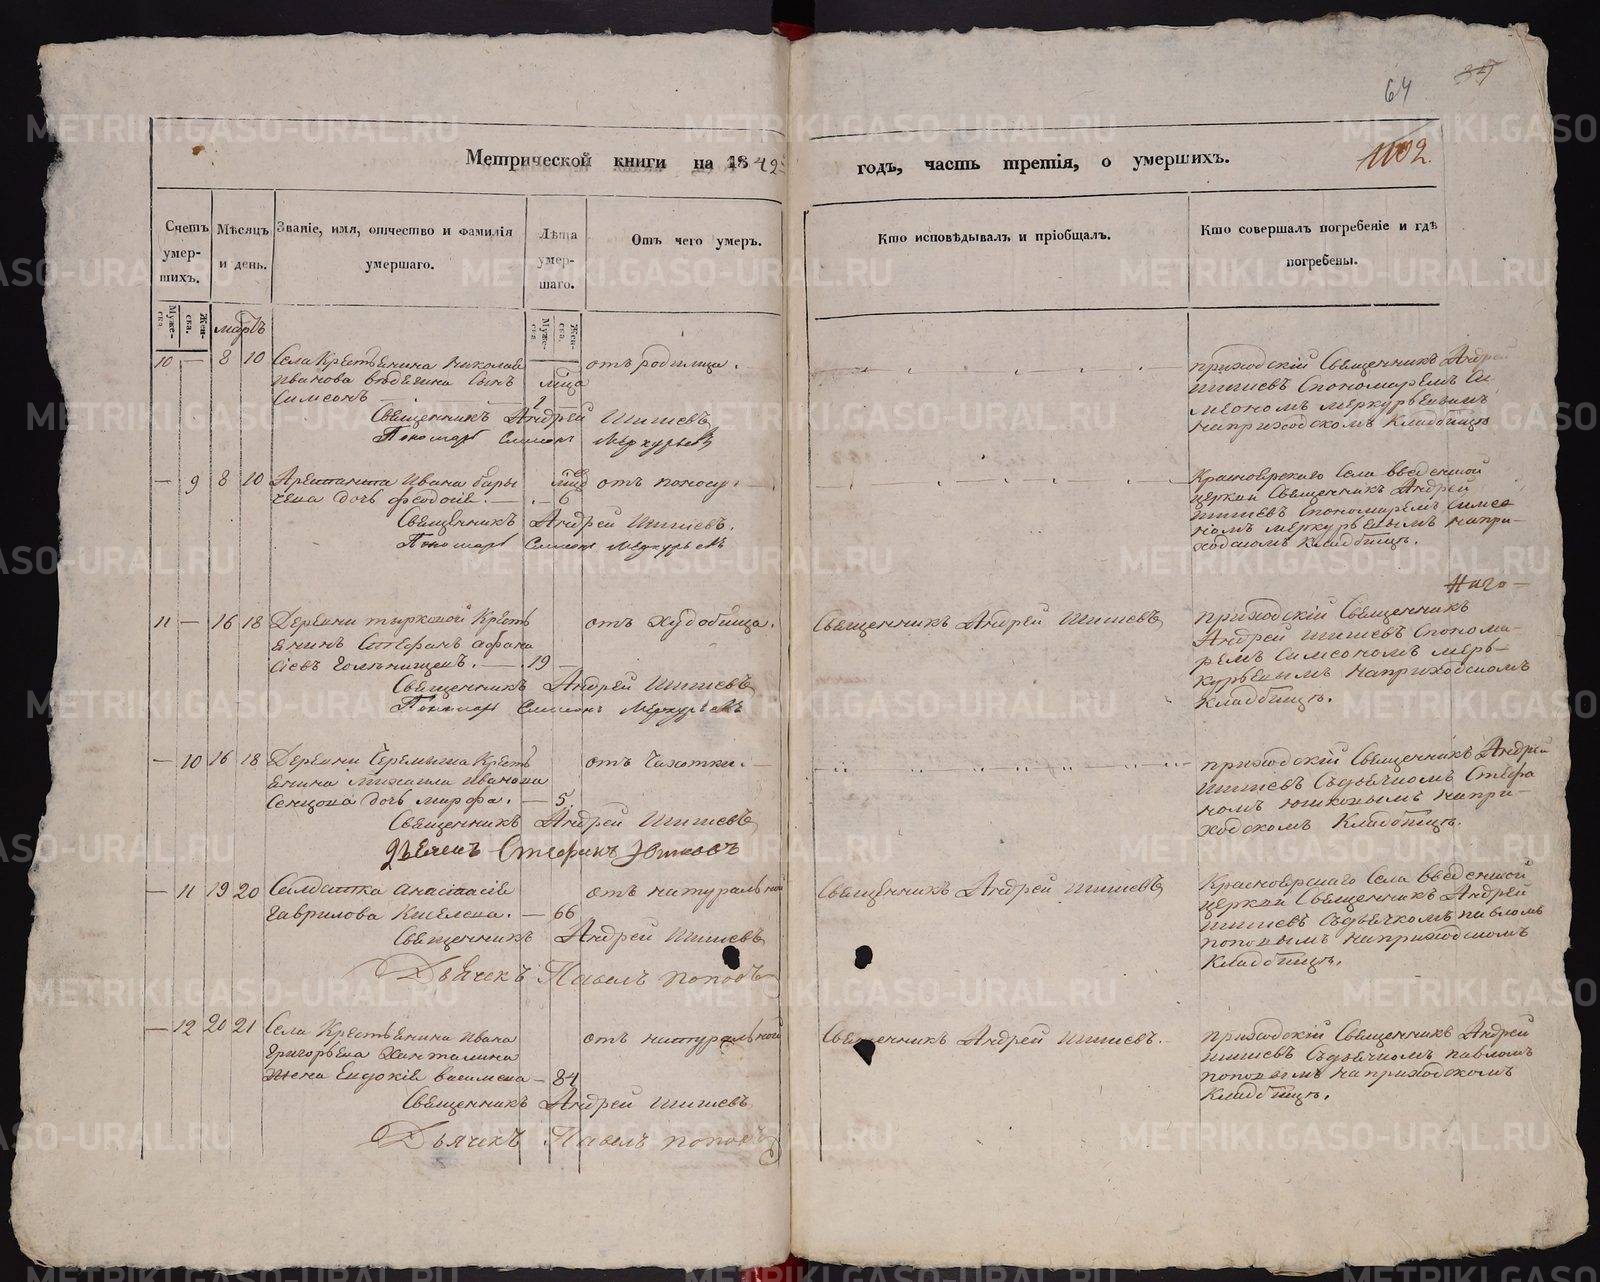 64
37
1102.
Метрической книги на 1842й годъ, часть третія, о умершихъ.
Счетъ умер-шихъ.
Мѣсяцъ и день.
Званіе, имя, отчество и фамилія умершаго.
Лѣта умер-шаго.
Отъ чего умеръ.
Кто исповѣдывалъ и пріобщалъ.
Кто совершалъ погребеніе и гдѣ погребены.
Муже-ска.
Жен-ска.
Муже-ска
Жен-ска.
мартъ
10 — 8 10 Села Крестьянина Николая
отъ родимца.
приходскій Священникъ Андрей
Иванова сынъ
Шишевъ Спономаремъ Си
Симеонъ
меономъ меркурьевымъ
Священникъ Андрей Шишевъ
Пономарь Симеонъ Меркурьевъ
наприходскомъ Кладбищѣ
— 9 8 10 Арестанта Ивана
дочь Феодосія. — 6
отъ поносу.
Красноярскаго Села введенской
церкви Священникъ Андрей
Священникъ Андрей Шишевъ.
Шишевъ Спономаремъ Симео
Пономарь Симеонъ Меркурьевъ
номъ меркурьевымъ напри-
ходскомъ Кладбищѣ.
11 — 16 18 Деревни Кресть
янинъ Стефанъ Афана
сіевъ — 19 —
отъ худобища.
Священникъ Андрей Шишевъ
приходскій Священникъ
Андрей Шишевъ Спонома-
ремъ Симеономъ мерь-
Священникъ Андрей Шишевъ
курьевымъ наприходскомъ
Пономарь Симеонъ Меркурьевъ
Кладбищѣ.
— 10 16 18 Деревни Черемыша Кресть
янина Михаила Иванова
Сенцова дочь марфа. — 5.
отъ Чахотки.
приходскій Священникъ Андрей
Шишевъ Сдьячкомъ Стефа
номъ Юшковымъ напри-
Священникъ Андрей Шишевъ
ходскомъ Кладбищѣ.
Дьячекъ Стефанъ Юшковъ
— 11 19 20 Солдатка анастасія
Гаврилова Киселева. — 66
отъ натуральной
Священникъ Андрей Шишевъ
Красноярскаго Села введенской
церкви Священникъ Андрей
Священникъ Андрей Шишевъ
Шишевъ Сдьячкомъ павломъ
поповымъ наприходскомъ
Дьячекъ Павелъ поповъ
Кладбищѣ.
— 12 20 21 Села Крестьянина Ивана
Григорьева Ханталина
Жена Евдокія васильева — 84
отъ натуральной
Священникъ Андрей Шишевъ.
приходскій Священникъ Андрей
Шишевъ Сдьячкомъ павломъ
поповымъ наприходскомъ
Священникъ Андрей Шишевъ
Кладбищѣ.
Дьячекъ Павелъ поповъ
METRIKI.GASO-URAL.RU